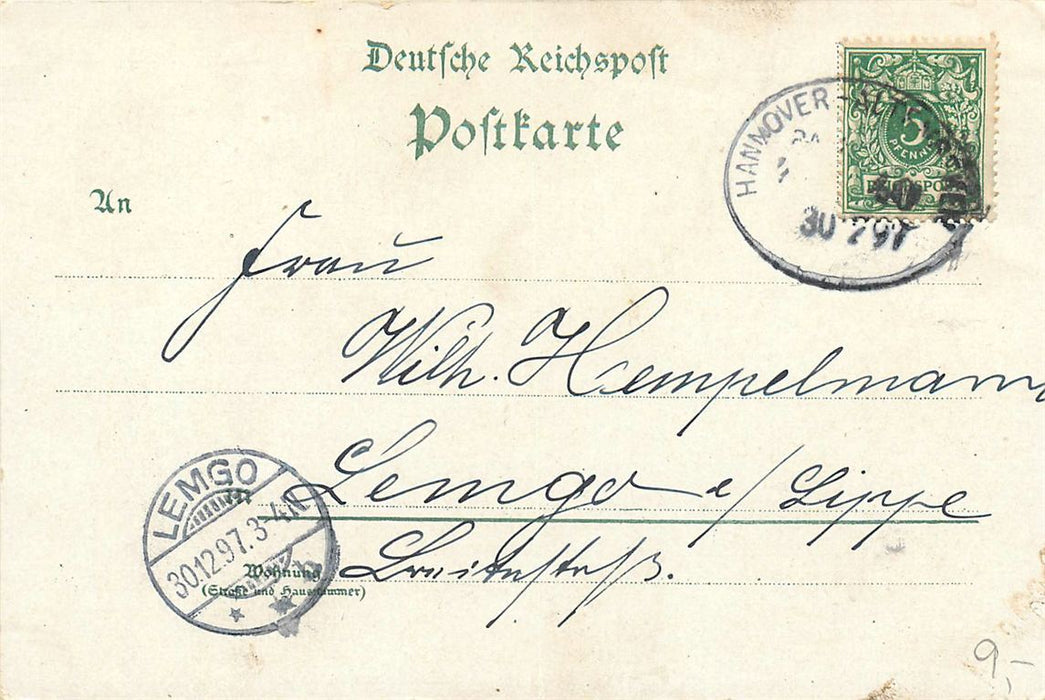 Deutsche Reichspost
Postkarte
An
HANNOVER-
5
PFENNIG
REICHSPOST
30 97
Frau
Wilh. Hempelmann
Lemgo i/Lippe
Breitestraß.
LEMGO
30.12.97.3-4N
Wohnung
(Straße und Hausnummer)
9,-